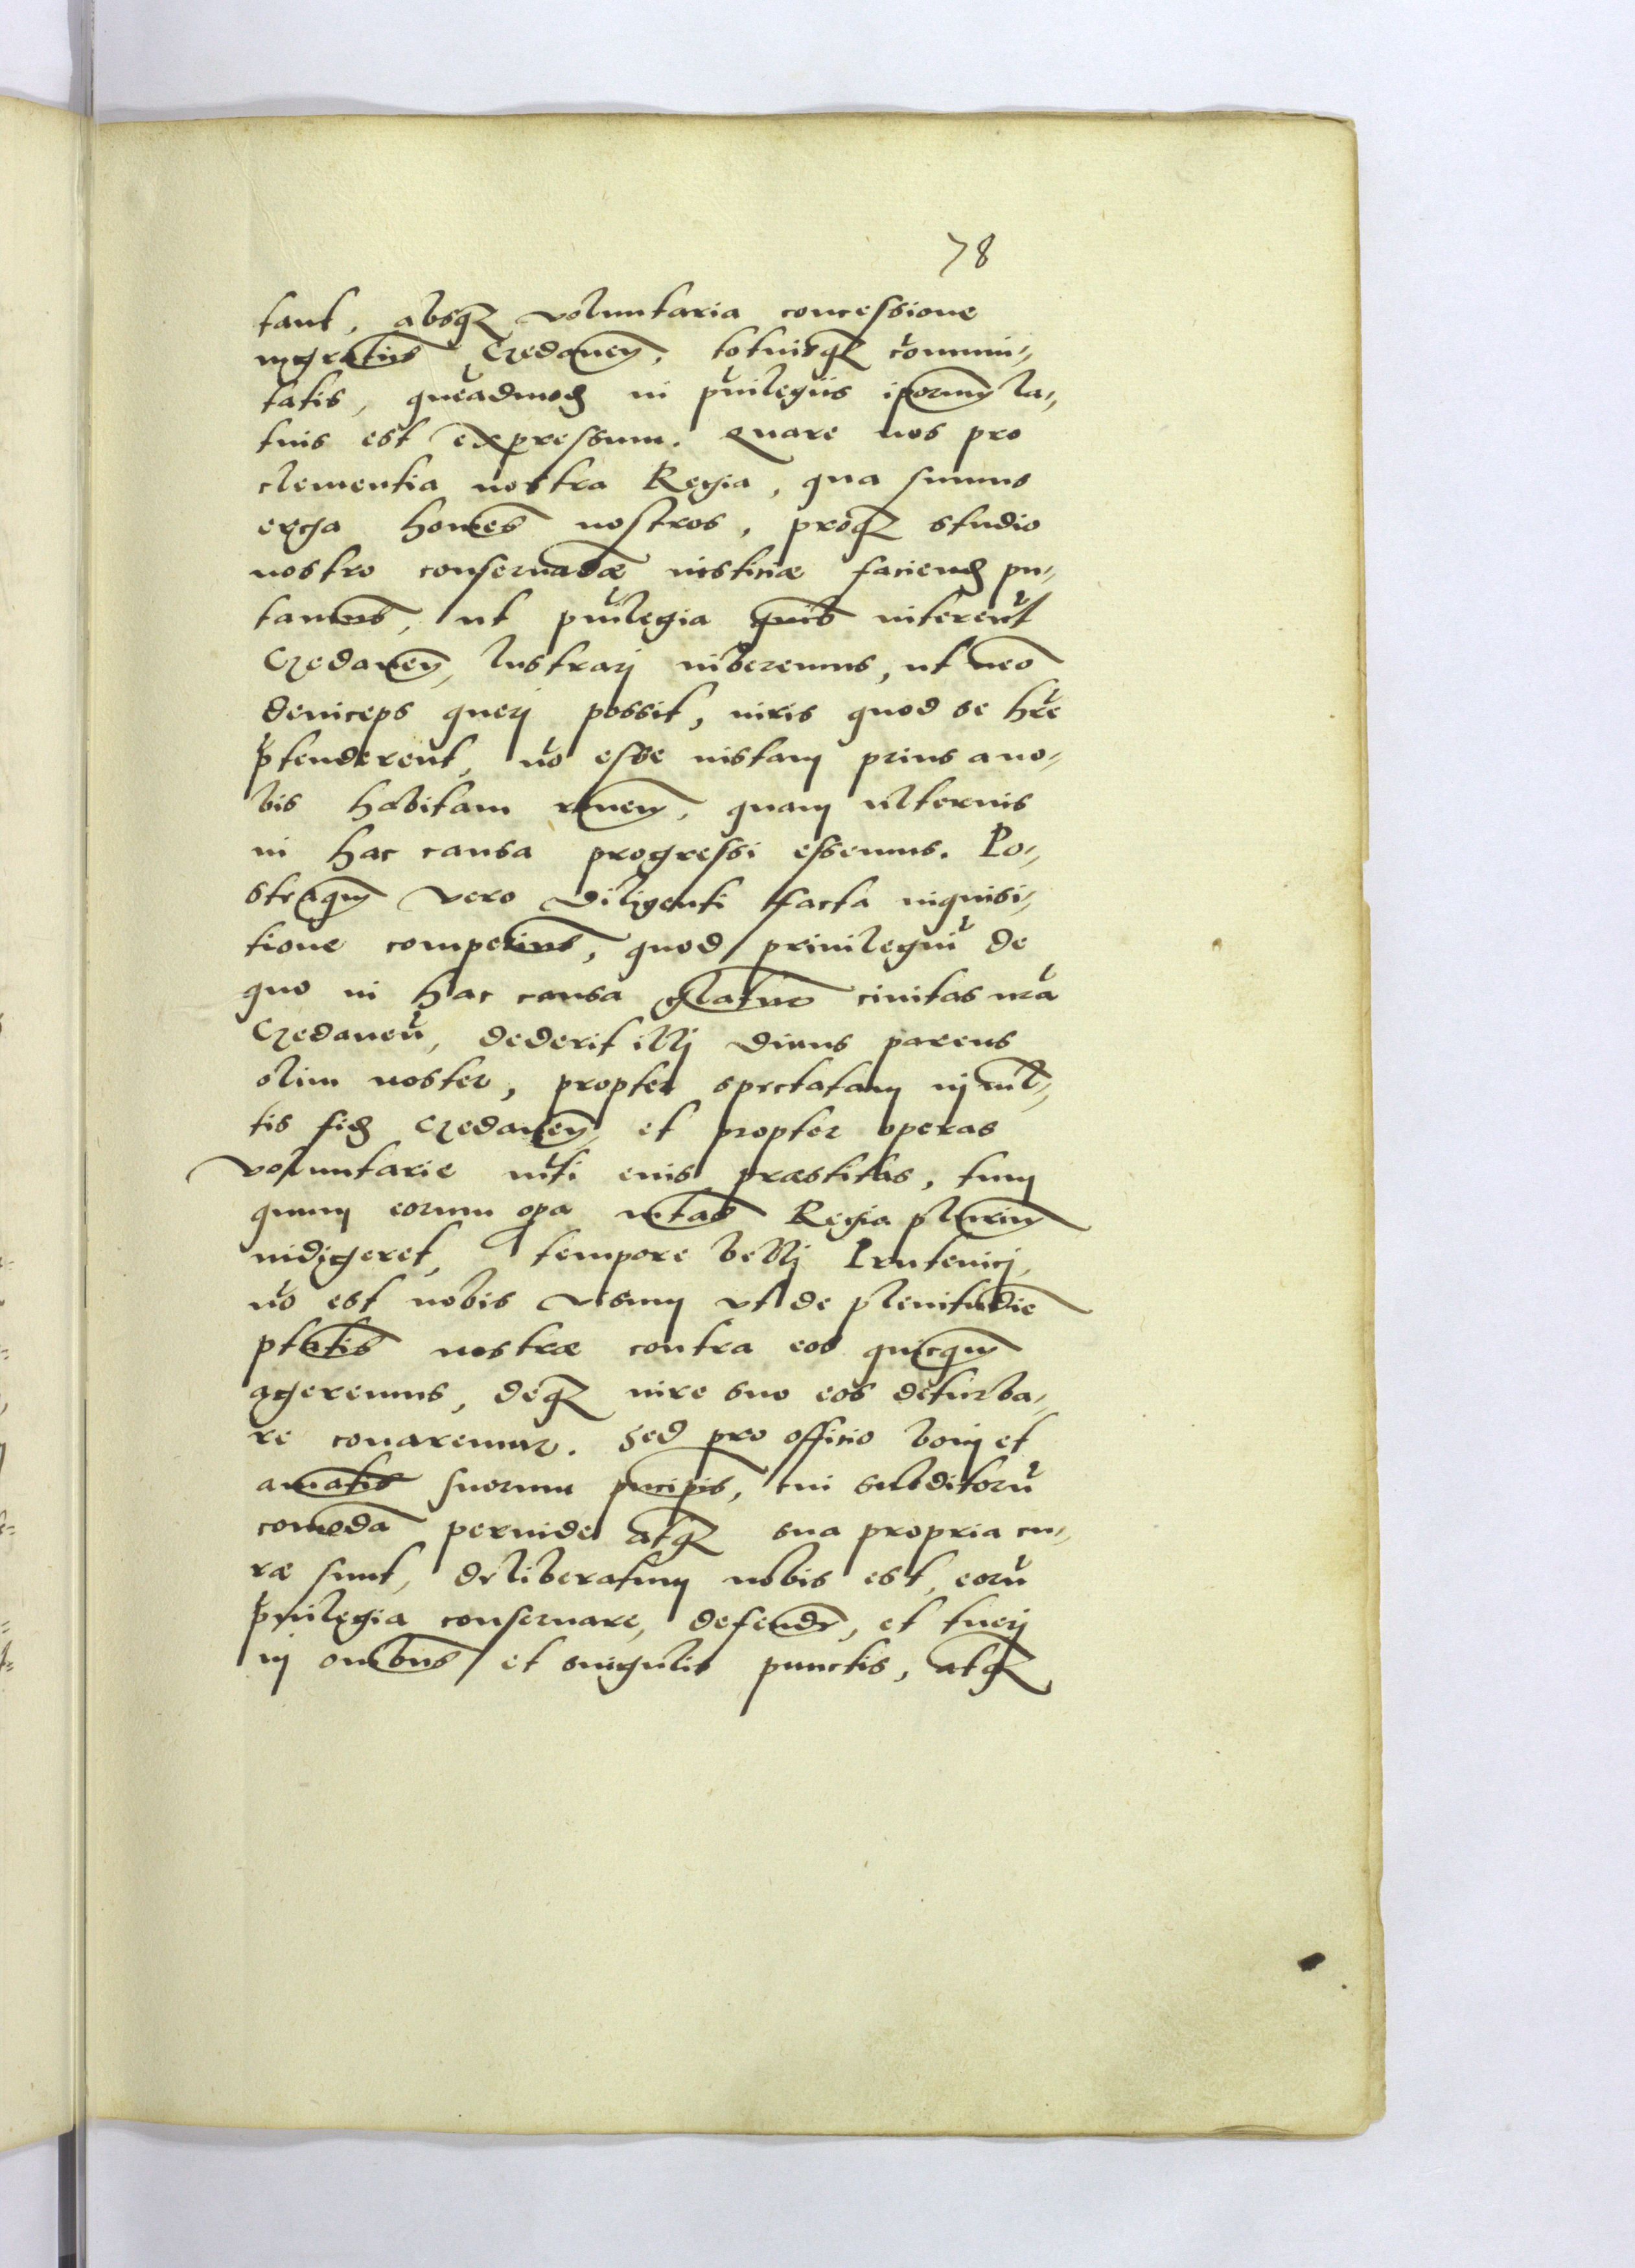 78
tant, absq voluntaria concessione
mgratus Gedanen, totiusq commu-
tatis, queadmod in priuilegiis ipsorum la-
tius est expressum. Quare nos pro
clementia nostra Regia, qua sumus
erga homines nostros, proq studio
nostro conseruadæ iusticiæ faciend pu-
tauimus, ut priuilegia quibus niterent
Gedanen, lustrari iuberemus, ut nemo
deinceps queri possit, iuris quod se hre
ptenderent, no esse iustam prius a no-
bis habitam ronem, quam ulterius
in hac causa progressi essemus. Po-
steaqm vero diligenti facta inquisi-
tione comperimus, quod priuilegiu de
quo in hac causa gloriatur ciuitas nra
Gedanen, dederit illi diuus parens
olim noster, propter spectatam in mul-
tis fid Gedanen, et propter operas
voluntarie mti eius præstitas, tum
quum eorum opa mtas Regia plurimum
indigeret, tempore belli Prutenici,
no est nobis visum vt de plenitudie
ptatis nostræ contra eos quicqm
ageremus, deq iure suo eos deturba-
re conaremur. Sed pro officio boni et
amatis suorum pncipis, cui subditoru
comoda perinde atq sua propria cu-
ræ sunt, deliberatum nobis est, eoru
priuilegia conseruare, defendere, et tueri
in omibus et singulis punctis, atq